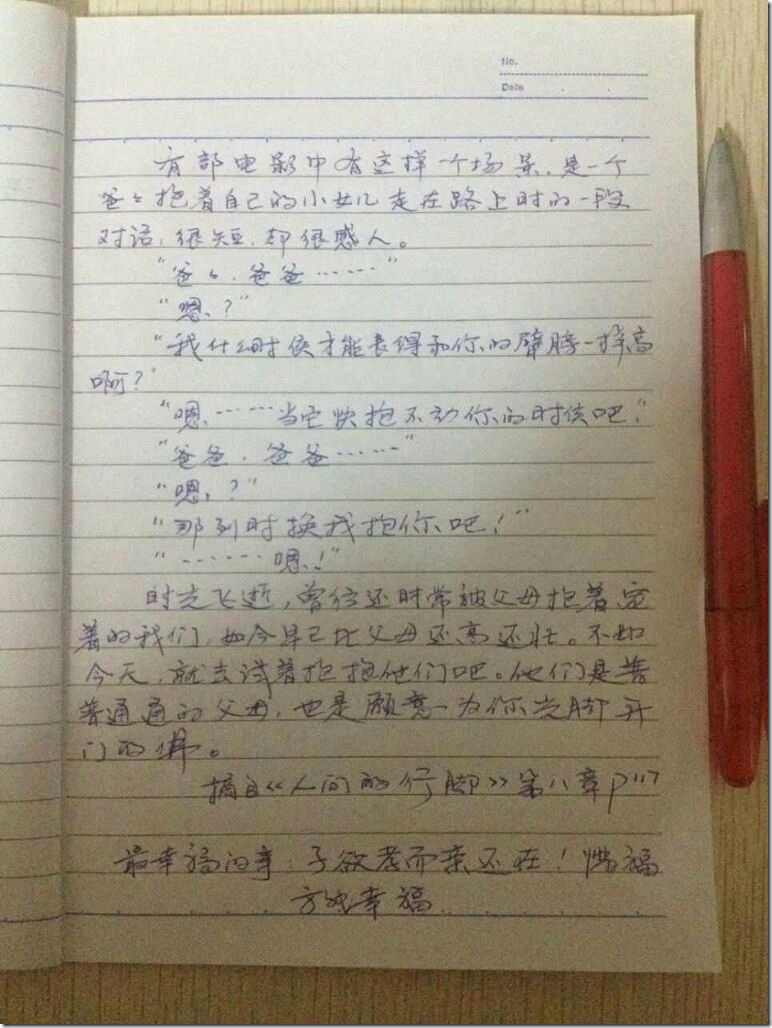 No.
Date
有部电影中有这样一个场景,是一个
爸々抱着自己的小女儿走在路上时的一段
对话,很短,却很感人。
"爸々,爸爸……"
"嗯,?"
"我什么时候才能长得和你的臂膀一样高
啊?"
"嗯,……当它快抱不动你的时候吧!"
"爸爸,爸爸……"
"嗯,?"
"那到时换我抱你吧!"
"……嗯,!"
时光飞逝,曾经还时常被父母抱着宠
着的我们,如今早已比父母还高还壮。不如
今天,就去试着抱抱他们吧。他们是普
普通通的父母,也是愿意为你光脚开
门的佛。
摘自《人间的行脚》第八章P117
最幸福的事:子欲孝而亲还在!惜福
方成幸福